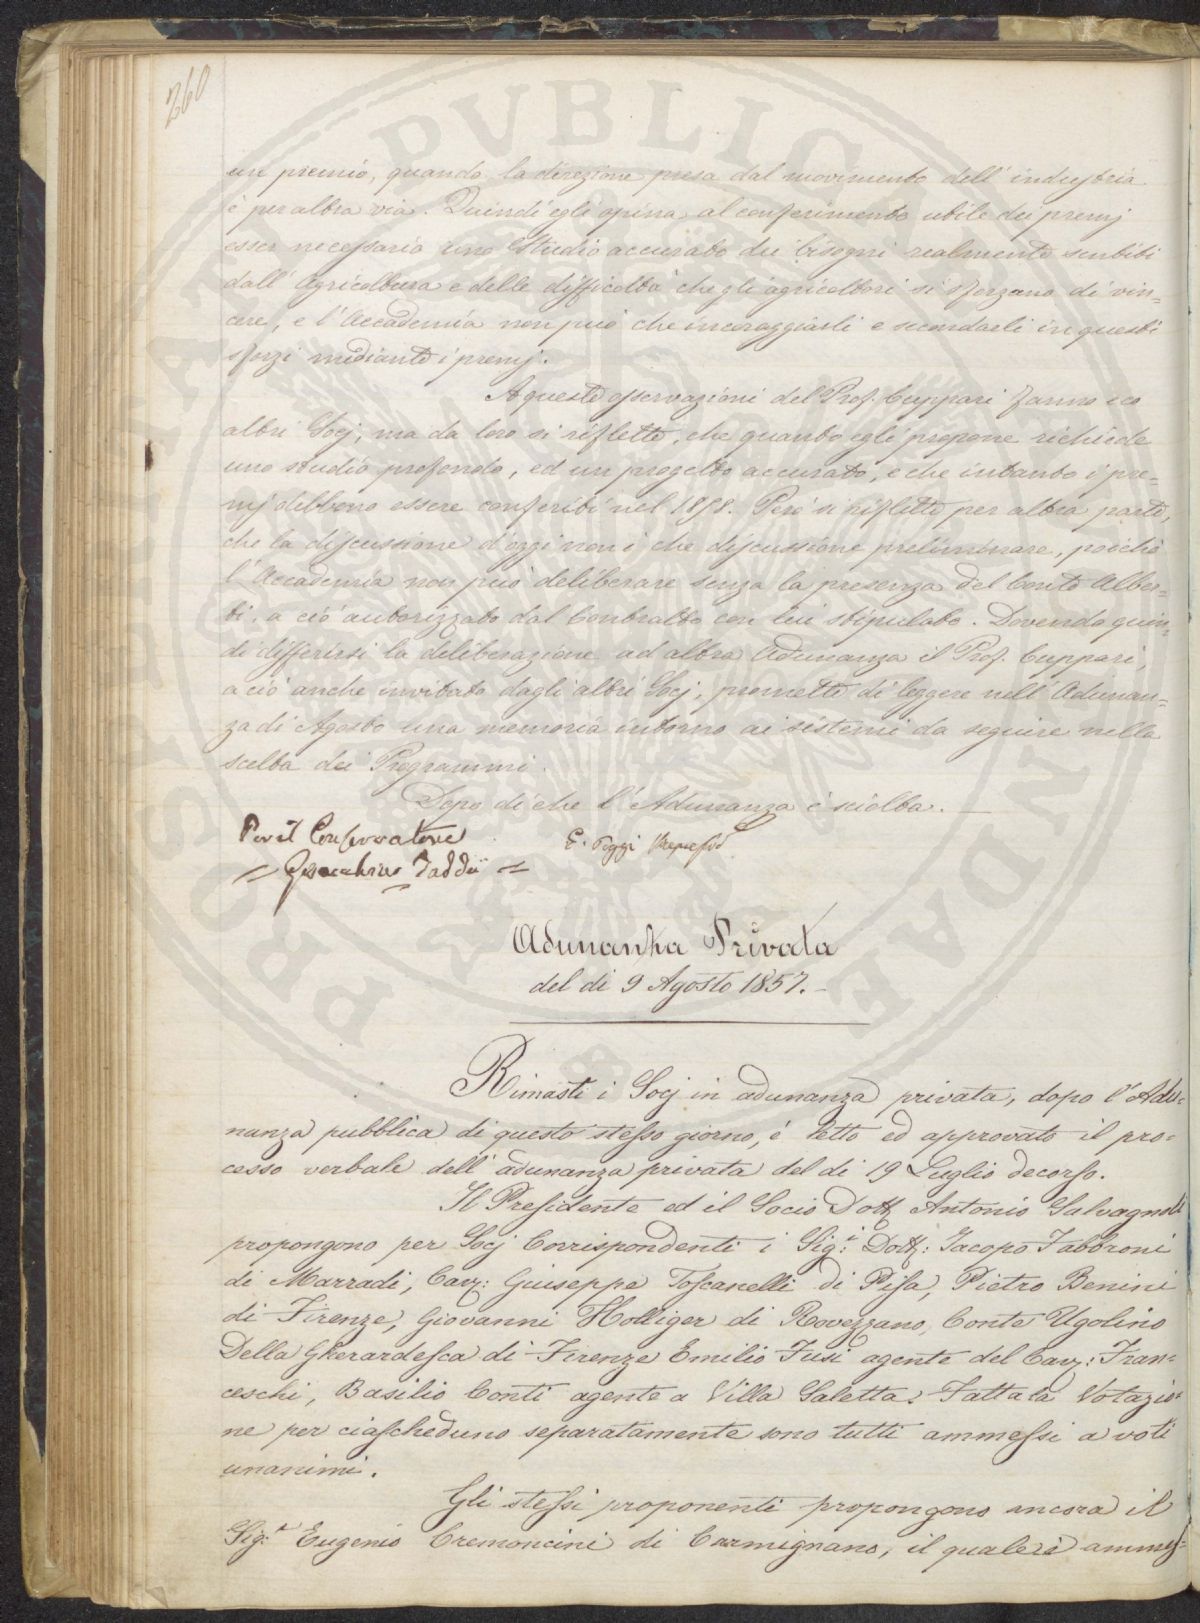 260
un premio, quando la direzione presa dal movimento dell' industria
è per altra via. Quindi egli opina al conferimento utile dei premj
esser necessario uno Studio accurato dei bisogni realmente sentiti
dall' Agricoltura e delle difficoltà che gli agricoltori si sforzano di vin=
cere, e l' Accademia non può che incoraggiarli e secondarli in questi
sforzi mediante i premj.
A queste osservazioni del Prof. Cuppari fanno eco
altri Socj, ma da loro si riflette, che quanto egli propone richiede
uno studio profondo, ed un progetto accurato, e che intanto i pre=
mj debbono essere conferiti nel 1858. Però si riflette per altra parte,
che la discussione d'oggi non è che discussione preliminare, poichè
l' Accademia non può deliberare senza la presenza del Conte Alber=
ti, a ciò autorizzato dal Contratto con lui stipulato. Dovendo quin=
di differirsi la deliberazione ad altra Adunanza il Prof. Cuppari,
a ciò anche invitato dagli altri Socj, promette di leggere nell' Adunan=
za di Agosto una memoria intorno ai sistemi da seguire nella
scelta dei Programmi.
Dopo di che l' Adunanza è sciolta.
Per il Conservatore
= Gioacchino Taddei =
E. Poggi
Adunanza Privata
del di 9 Agosto 1857.
Rimasti i Socj in adunanza privata, dopo l' Adu=
nanza pubblica di questo stesso giorno, é letto ed approvato il pro=
cesso verbale dell' adunanza privata del di 19 Luglio decorso.
Il Presidente ed il Socio Dott Antonio Salvagnoli
propongono per Socj Corrispondenti i Sigi: Dott: Jacopo Fabbroni
di Marradi, Cav: Giuseppe Toscanelli di Pisa, Pietro Benini
di Firenze, Giovanni Holliger di Rovezzano, Conte Ugolino
Della Gherardesca di Firenze Emilio Fusi agente del Cav: Fran=
ceschi, Basilio Conti agente a Villa Saletta. Fatta la Votazio=
ne per ciascheduno separatamente sono tutti ammessi a voti
unanimi.
Gli stessi proponenti propongono ancora il
Sig.r Eugenio Cremoncini di Carmignano, il quale è ammes=
PROPERTY OF THE PUBLIC DOMAIN